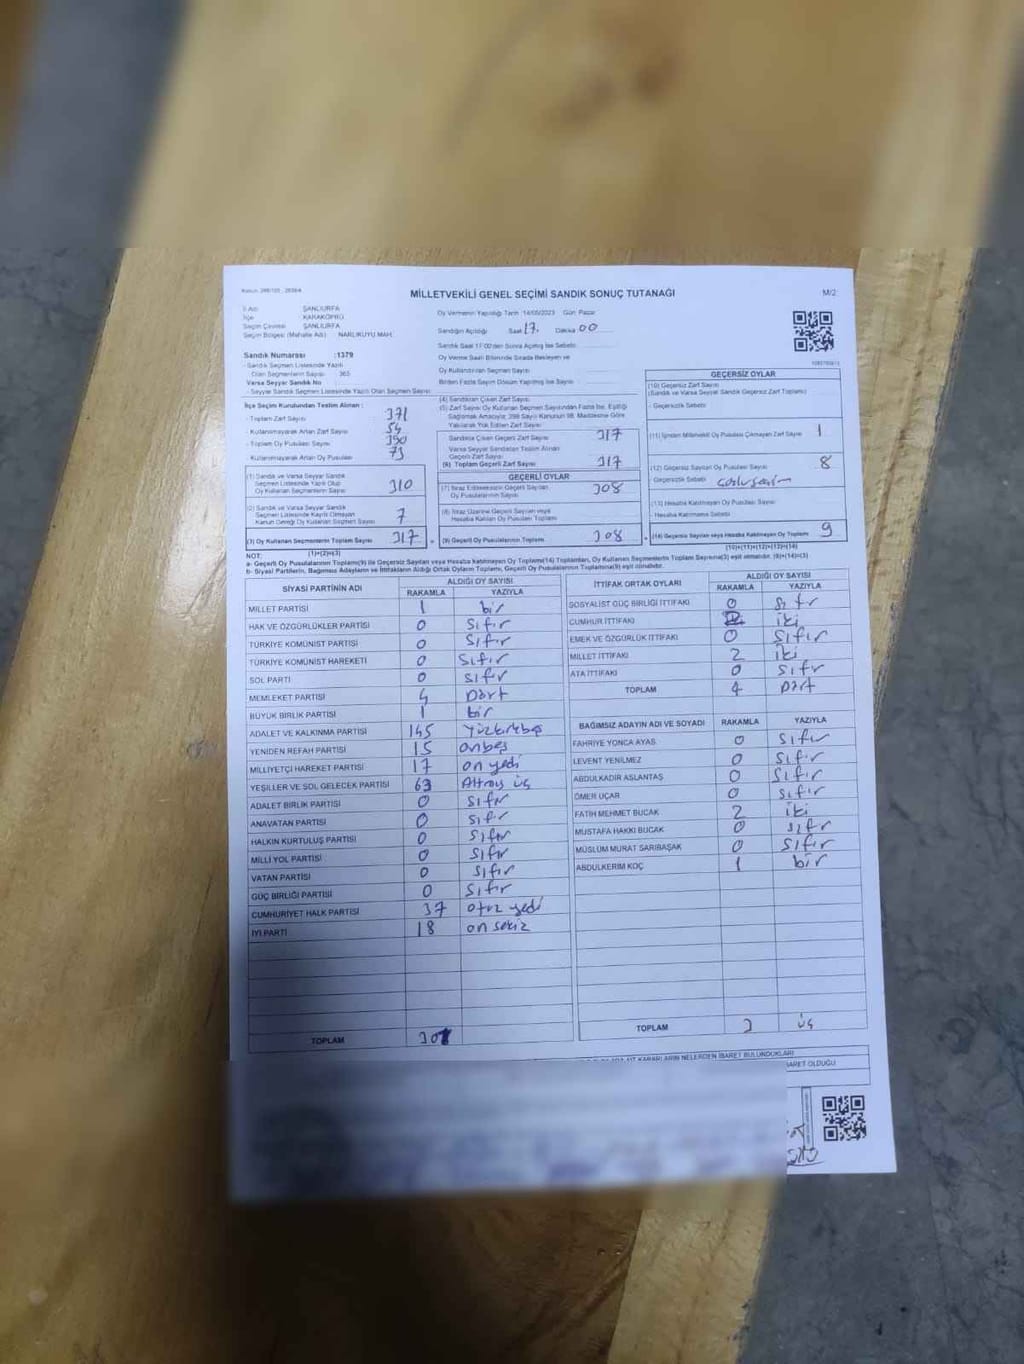 MİLLETVEKİLİ GENEL SEÇİMİ SANDIK SONUÇ TUTANAĞI
M/2
İl Adı ŞANLIURFA
İlçe KARAKÖPRÜ
Seçim Çevresi ŞANLIURFA
Seçim Bölgesi (Mahalle Adı) NARLIKUYU MAH.
Oy Vermenin Yapıldığı Tarih 14/05/2023 Gün Pazar
Sandığın Açıldığı Saat 17 Dakika 00
Sandık Saat 17:00'den Sonra Açılmış İse Sebebi
Oy Verme Saati Bitiminde Sırada Bekleyen ve
Oy Kullandırılan Seçmen Sayısı
Birden Fazla Sayım Döküm Yapılmış İse Sayısı
Sandık Numarası :1379
- Sandık Seçmen Listesinde Yazılı
Olan Seçmenlerin Sayısı 365
Varsa Seyyar Sandık No
- Seyyar Sandık Seçmen Listesinde Yazılı Olan Seçmen Sayısı
İlçe Seçim Kurulundan Teslim Alınan :
- Toplam Zarf Sayısı 371
- Kullanılmayarak Artan Zarf Sayısı 54
- Toplam Oy Pusulası Sayısı 390
- Kullanılmayarak Artan Oy Pusulası 73
(1) Sandık ve Varsa Seyyar Sandık
Seçmen Listesinde Yazılı Olup
Oy Kullanan Seçmenlerin Sayısı 310
(2) Sandık ve Varsa Seyyar Sandık
Seçmen Listesinde Kayıtlı Olmayan
Kanun Gereği Oy Kullanan Seçmen Sayısı 7
(3) Oy Kullanan Seçmenlerin Toplam Sayısı 317
(1)+(2)=(3)
(4) Sandıktan Çıkan Zarf Sayısı
(5) Zarf Sayısı Oy Kullanan Seçmen Sayısından Fazla İse, Eşitliği
Sağlamak Amacıyla; 298 Sayılı Kanunun 98. Maddesine Göre
Yakılarak Yok Edilen Zarf Sayısı
Sandıkta Çıkan Geçerli Zarf Sayısı 317
Varsa Seyyar Sandıktan Teslim Alınan
Geçerli Zarf Sayısı
(6) Toplam Geçerli Zarf Sayısı 317
GEÇERLİ OYLAR
(7) İtiraz Edilmeksizin Geçerli Sayılan
Oy Pusulalarının Sayısı 308
(8) İtiraz Üzerine Geçerli Sayılan veya
Hesaba Katılan Oy Pusulası Toplamı
(9) Geçerli Oy Pusulalarının Toplamı 308
GEÇERSİZ OYLAR
(10) Geçersiz Zarf Sayısı
(Sandık ve Varsa Seyyar Sandık Geçersiz Zarf Toplamı)
- Geçersizlik Sebebi
(11) İçinden Milletvekili Oy Pusulası Çıkmayan Zarf Sayısı 1
(12) Geçersiz Sayılan Oy Pusulası Sayısı 8
Geçersizlik Sebebi
(13) Hesaba Katılmayan Oy Pusulası Sayısı
- Hesaba Katılmama Sebebi
(14) Geçersiz Sayılan veya Hesaba Katılmayan Oy Toplamı 9
(10)+(11)+(12)+(13)=(14)
NOT:
a- Geçerli Oy Pusulalarının Toplamı(9) ile Geçersiz Sayılan veya Hesaba Katılmayan Oy Toplamı(14) Toplamları, Oy Kullanan Seçmenlerin Toplam Sayısına(3) eşit olmalıdır. (9)+(14)=(3)
b- Siyasi Partilerin, Bağımsız Adayların ve İttifakların Aldığı Ortak Oyların Toplamı, Geçerli Oy Pusulalarının Toplamına(9) eşit olmalıdır.
SİYASİ PARTİNİN ADI ALDIĞI OY SAYISI
RAKAMLA YAZIYLA
MİLLET PARTİSİ 1 bir
HAK VE ÖZGÜRLÜKLER PARTİSİ 0 sıfır
TÜRKİYE KOMÜNİST PARTİSİ 0 sıfır
TÜRKİYE KOMÜNİST HAREKETİ 0 sıfır
SOL PARTİ 0 sıfır
MEMLEKET PARTİSİ 4 Dört
BÜYÜK BİRLİK PARTİSİ 1 bir
ADALET VE KALKINMA PARTİSİ 145 Yüzkırkbeş
YENİDEN REFAH PARTİSİ 15 onbeş
MİLLİYETÇİ HAREKET PARTİSİ 17 on yedi
YEŞİLLER VE SOL GELECEK PARTİSİ 63 Altmış üç
ADALET BİRLİK PARTİSİ 0 sıfır
ANAVATAN PARTİSİ 0 sıfır
HALKIN KURTULUŞ PARTİSİ 0 sıfır
MİLLİ YOL PARTİSİ 0 sıfır
VATAN PARTİSİ 0 sıfır
GÜÇ BİRLİĞİ PARTİSİ 0 sıfır
CUMHURİYET HALK PARTİSİ 37 otuz yedi
İYİ PARTİ 18 on sekiz
TOPLAM 301
İTTİFAK ORTAK OYLARI ALDIĞI OY SAYISI
RAKAMLA YAZIYLA
SOSYALİST GÜÇ BİRLİĞİ İTTİFAKI 0 sıfır
CUMHUR İTTİFAKI 2 iki
EMEK VE ÖZGÜRLÜK İTTİFAKI 0 sıfır
MİLLET İTTİFAKI 2 iki
ATA İTTİFAKI 0 sıfır
TOPLAM 4 Dört
BAĞIMSIZ ADAYIN ADI VE SOYADI RAKAMLA YAZIYLA
FAHRİYE YONCA AYAS 0 sıfır
LEVENT YENİLMEZ 0 sıfır
ABDULKADİR ASLANTAŞ 0 sıfır
ÖMER UÇAR 0 sıfır
FATİH MEHMET BUCAK 2 iki
MUSTAFA HAKKI BUCAK 0 sıfır
MÜSLÜM MURAT SARIBAŞAK 0 sıfır
ABDULKERİM KOÇ 1 bir
TOPLAM 3 üç
KARARLARIN NELERDEN İBARET BULUNDUKLARI
İBARET OLDUĞU